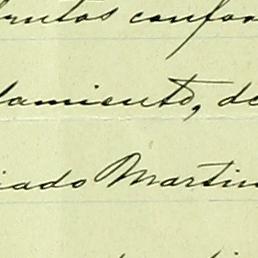 brutos confor
lamiento, de
iado Martin